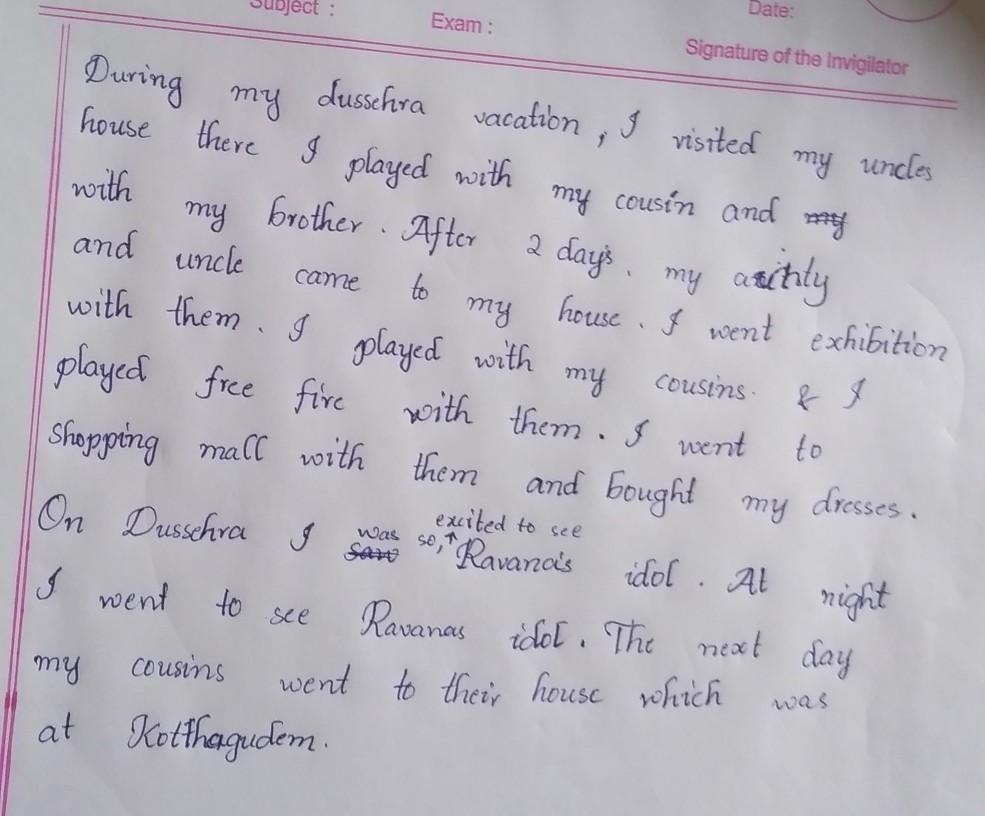 Subject : Exam : Date:
Signature of the Invigilator
During my dussehra vacation, I visited my uncles
house there I played with my cousin and my
with my brother. After 2 days. my
and uncle came to my house. I went exhibition
with them. I played with my cousins. & I
played free fire with them. I went to
shopping mall with them and bought my dresses.
On Dussehra I was so, excited to see Ravana's idol. At night
I went to see Ravanas idol. The next day
my cousins went to their house which was
at Kotthagudem.